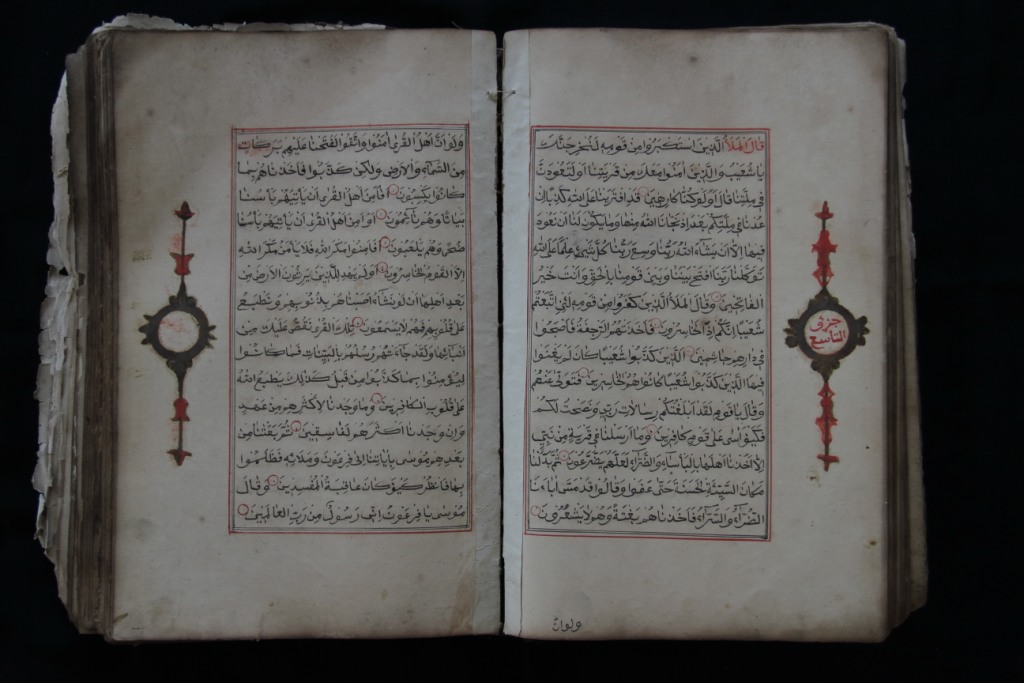 قَالَ الْمَلَأُ الَّذِينَ اسْتَكْبَرُوا مِنْ قَوْمِهِ لَنُخْرِجَنَّكَ
يَا شُعَيْبُ وَالَّذِينَ اٰمَنُوا مَعَكَ مِنْ قَرْيَتِنَا اَوْ لَتَعُودُنَّ
فِي مِلَّتِنَا قَالَ اَوَلَوْ كُنَّا كَارِهِينَ قَدِ افْتَرَيْنَا عَلَى اللّٰهِ كَذِبًا اِنْ
عُدْنَا فِي مِلَّتِكُمْ بَعْدَ اِذْ نَجَّانَا اللّٰهُ مِنْهَا وَمَا يَكُونُ لَنَا اَنْ نَعُودَ
فِيهَا اِلَّا اَنْ يَشَاءَ اللّٰهُ رَبُّنَا وَسِعَ رَبُّنَا كُلَّ شَيْءٍ عِلْمًا عَلَى اللّٰهِ
تَوَكَّلْنَا رَبَّنَا افْتَحْ بَيْنَنَا وَبَيْنَ قَوْمِنَا بِالْحَقِّ وَاَنْتَ خَيْرُ
الْفَاتِحِينَ وَقَالَ الْمَلَأُ الَّذِينَ كَفَرُوا مِنْ قَوْمِهِ لَئِنِ اتَّبَعْتُمْ
شُعَيْبًا اِنَّكُمْ اِذًا لَخَاسِرُونَ فَاَخَذَتْهُمُ الرَّجْفَةُ فَاَصْبَحُوا
فِي دَارِهِمْ جَاثِمِينَ الَّذِينَ كَذَّبُوا شُعَيْبًا كَاَنْ لَمْ يَغْنَوْا
فِيهَا الَّذِينَ كَذَّبُوا شُعَيْبًا كَانُوا هُمُ الْخَاسِرِينَ فَتَوَلَّى عَنْهُمْ
وَقَالَ يَا قَوْمِ لَقَدْ اَبْلَغْتُكُمْ رِسَالَاتِ رَبِّي وَنَصَحْتُ لَكُمْ
فَكَيْفَ اٰسَى عَلَى قَوْمٍ كَافِرِينَ وَمَا اَرْسَلْنَا فِي قَرْيَةٍ مِنْ نَبِيٍّ
اِلَّا اَخَذْنَا اَهْلَهَا بِالْبَأْسَاءِ وَالضَّرَّاءِ لَعَلَّهُمْ يَضَّرَّعُونَ ثُمَّ بَدَّلْنَا
مَكَانَ السَّيِّئَةِ الْحَسَنَةَ حَتَّى عَفَوْا وَقَالُوا قَدْ مَسَّ اٰبَاءَنَا
الضَّرَّاءُ وَالسَّرَّاءُ فَاَخَذْنَاهُمْ بَغْتَةً وَهُمْ لَا يَشْعُرُونَ
جزؤ
التاسع
ولوان
وَلَوْ اَنَّ اَهْلَ الْقُرَى اٰمَنُوا وَاتَّقَوْا لَفَتَحْنَا عَلَيْهِمْ بَرَكَاتٍ
مِنَ السَّمَاءِ وَالْاَرْضِ وَلٰكِنْ كَذَّبُوا فَاَخَذْنَاهُمْ بِمَا
كَانُوا يَكْسِبُونَ اَفَاَمِنَ اَهْلُ الْقُرَى اَنْ يَأْتِيَهُمْ بَأْسُنَا
بَيَاتًا وَهُمْ نَائِمُونَ اَوَاَمِنَ اَهْلُ الْقُرَى اَنْ يَأْتِيَهُمْ بَأْسُنَا
ضُحًى وَهُمْ يَلْعَبُونَ اَفَاَمِنُوا مَكْرَ اللّٰهِ فَلَا يَأْمَنُ مَكْرَ اللّٰهِ
اِلَّا الْقَوْمُ الْخَاسِرُونَ اَوَلَمْ يَهْدِ لِلَّذِينَ يَرِثُونَ الْاَرْضَ مِنْ
بَعْدِ اَهْلِهَا اَنْ لَوْ نَشَاءُ اَصَبْنَاهُمْ بِذُنُوبِهِمْ وَنَطْبَعُ
عَلَى قُلُوبِهِمْ فَهُمْ لَا يَسْمَعُونَ تِلْكَ الْقُرَى نَقُصُّ عَلَيْكَ مِنْ
اَنْبَائِهَا وَلَقَدْ جَاءَتْهُمْ رُسُلُهُمْ بِالْبَيِّنَاتِ فَمَا كَانُوا
لِيُؤْمِنُوا بِمَا كَذَّبُوا مِنْ قَبْلُ كَذٰلِكَ يَطْبَعُ اللّٰهُ
عَلَى قُلُوبِ الْكَافِرِينَ وَمَا وَجَدْنَا لِاَكْثَرِهِمْ مِنْ عَهْدٍ
وَاِنْ وَجَدْنَا اَكْثَرَهُمْ لَفَاسِقِينَ ثُمَّ بَعَثْنَا مِنْ
بَعْدِهِمْ مُوسَى بِاٰيَاتِنَا اِلَى فِرْعَوْنَ وَمَلَائِهِ فَظَلَمُوا
بِهَا فَانْظُرْ كَيْفَ كَانَ عَاقِبَةُ الْمُفْسِدِينَ وَقَالَ
مُوسَى يَا فِرْعَوْنُ اِنِّي رَسُولٌ مِنْ رَبِّ الْعَالَمِينَ